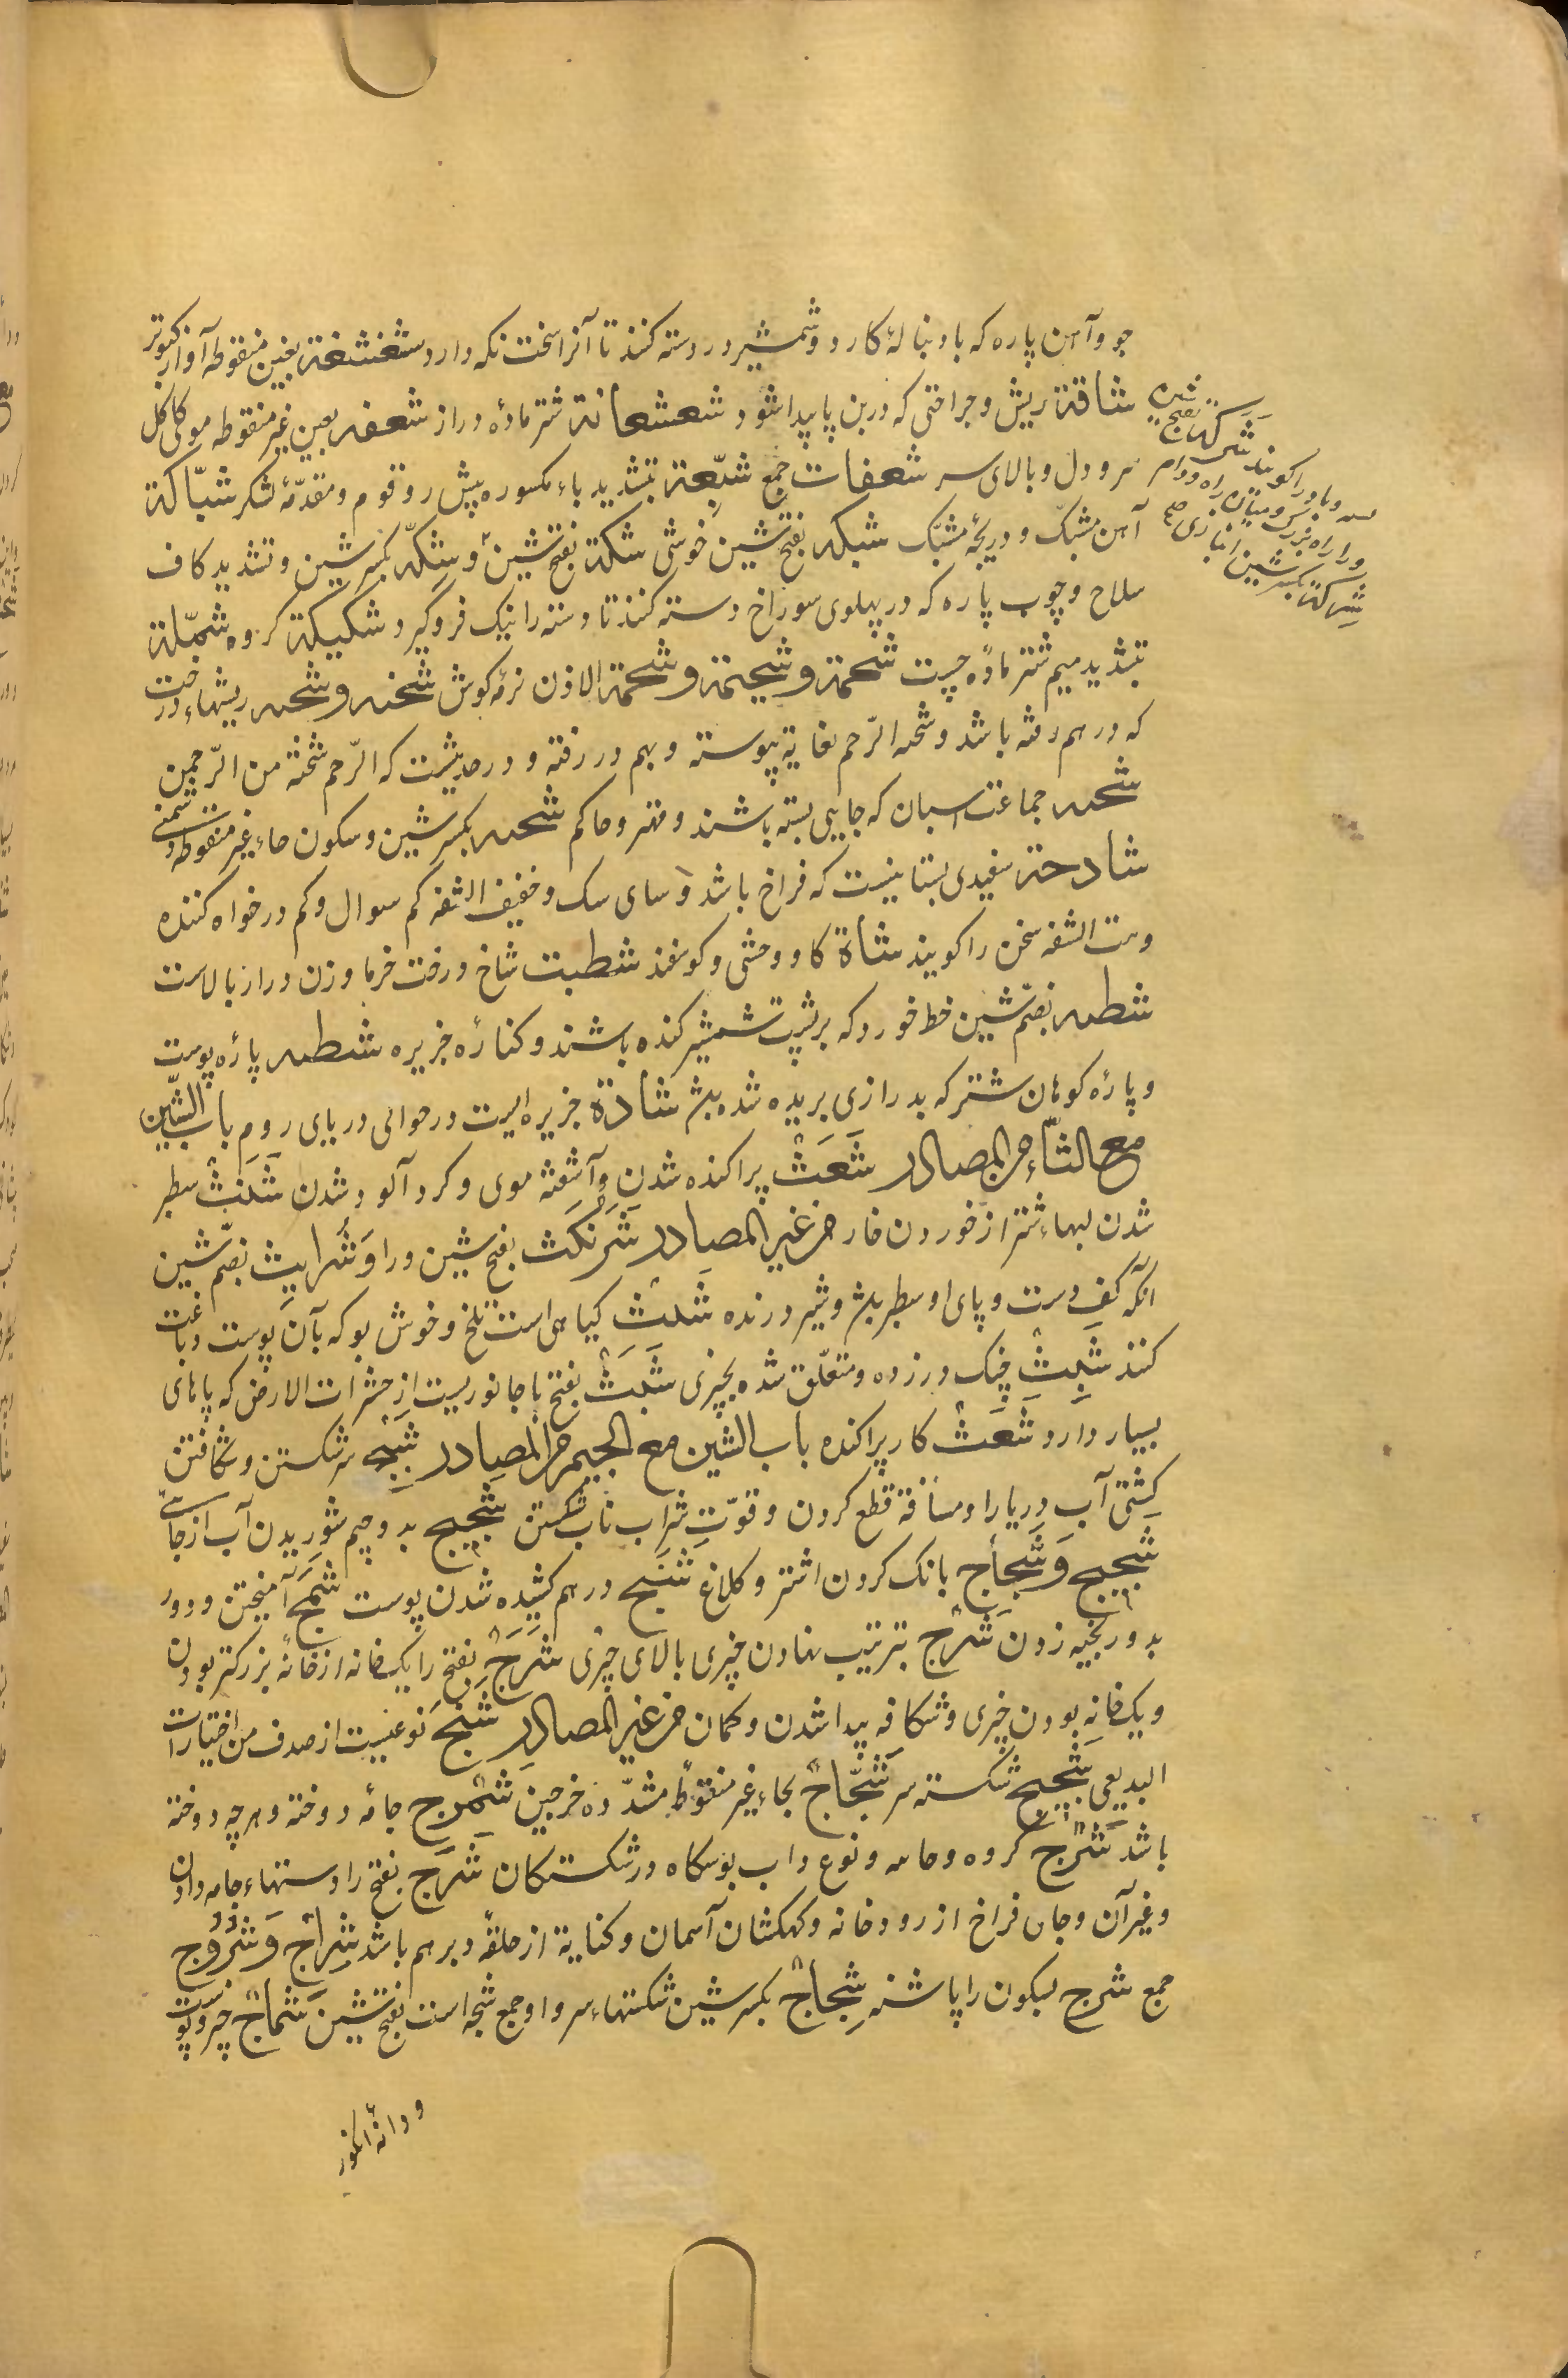 جو و آهن پاره که با دنبالهٔ کارد و شمشیر در دسته کنند تا آنرا سخت نکه دارد شغشغة بغین منقوطه آواز کبوتر
شاقة ریش و جراحتی که در بن پا پیدا شود شعشعانة شتر مادهٔ دراز شعفه بعین غیر منقوطه موی کاکل
سر و دل و بالای سر شعفات جمع شیّعة بتشدید یاء مکسوره پیش رو قوم و مقدّمهٔ لشکر شبّاکة
آهن مشبّک و دریچهٔ مشبّک شبکه بفتح شین خوشی شکة بفتح شین و شکّه بکسر شین و تشدید کاف
سلاح و چوب پاره که در پهلوی سوراخ دسته کنند تا دسته را نیک فروگیرد شکیکة کروه شمّلة
بتشدید میم شتر مادهٔ چست شحمة و شحیمة و شحمة الاذن نرمهٔ کوش شجنه و شجنه ریشهاء درخت
که در هم رفته باشد و شجنه الرّحم بغایة پیوسته و بهم در رفته و در حدیثست که الرّحم شجنة من الرّحمن
شحنه جماعت اسبان که جایی بسته باشند و مهتر و حاکم شحنه بکسر شین و سکون حاء غیر منقوطه دشمنی
شادحة سفیدی پیشانیست که فراخ باشد و خفیف الشفه کم سوال و کم درخواه کننده
الشفه سخن را کویند شاة کاو وحشی و کوسفند شطبت شاخ درخت خرما و زن دراز بالاست
شطبه بضمّ شین خط خورد که بر پشت شمشیر کنده باشند و کنارهٔ جزیره شطبه پارهٔ پوست
و پارهٔ کوهان شتر که بدرازی بریده شده باشد شادة جزیره ایست در حوالی دریای روم باب الشّین
مع الثاء من المصادر شَعَثٌ پراکنده شدن و آشفته موی و کرد آلود شدن شَنَثٌ سطبر
شدن لبهاء شتر از خوردن خار من غیر المصادر شَرَنْبَث بفتح شین و را و شُرابِث بضمّ شین
آنکه کف دست و پای او سطبر باشد و شیر درنده شَثّ کیاهی است تلخ و خوش بو که بآن پوست دباغت
کنند شَبِثٌ چنک در زده و متعلّق شده بچیزی شَبَثٌ بفتح با جانوریست از حشرات الارض که پاهای
بسیار دارد شَعَثٌ کار پراکنده باب الشین مع الجیم من المصادر شجّ سر شکستن و شکافتن
کشتی آب دریا را و مسافة قطع کردن و قوّت شراب ناب شکستن شجیج بدو جیم شوریدن آب از جای
شحیج و شحاج بانک کردن اشتر و کلاغ شنج در هم کشیده شدن پوست شمج آمیختن و دور
بدور بخیه زدن شَرْج بترتیب نهادن چیزی بالای چیزی شَرَجٌ بفتح را یک خانه از خانهٔ بزرکتر بودن
و یک خانه بودن چیزی و شکافه پیدا شدن و کمان من غیر المصادر شنج نوعیست از صدف من اختیارات
البدیعی شجیج شکسته سر شحّاج بحاء غیر منقوطهٔ مشدّده خرجین شمرج جامهٔ دوخته و هرچه دوخته
باشد شَرْجٌ کروه و نوع و آب در شکستکان شَرَج بفتح را دستهاء جامه دان
و غیر آن و جای فراخ از رودخانه و کهکشان آسمان و کنایة از حلقهٔ دبر هم باشد شِراج و شُرُوج
جمع شرج بسکون را باشد شِجاجٌ بکسر شین شکستهاء سر و او جمع شجه است بفتح شین شَماجٌ
و دانهٔ انکور
شرکه بفتح شین
و را راه بزرک و میان راه و دام
شِرکة بکسر شین انبازی صح